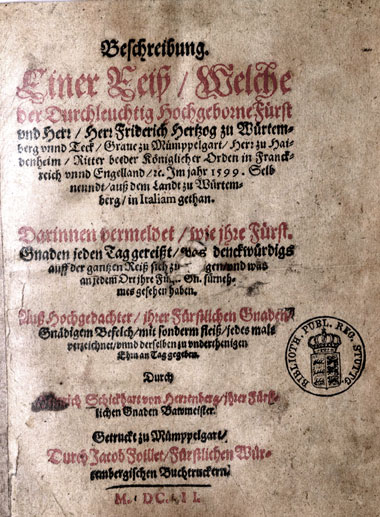 Beschreibung.
Einer Reiß / Welche
der Durchleuchtig Hochgeborne Fürst
vnd Herr / Herr Friderich Hertzog zu Würtem-
berg vnnd Teck / Graue zu Mümppelgart / Herr zu Hai-
denheim / Ritter beeder Königlicher Orden in Franck-
reich vnnd Engelland / ꝛc. Im jahr 1599. Selb
neundt / auß dem Landt zu Würtem-
berg / in Italiam gethan.
Darinnen vermeldet / wie jhre Fürst.
Gnaden jeden Tag gereißt / was denckwürdigs
auff der gantzen Reiß sich zu gen / vnd was
an jedem Ort jhre Gn. fürneh-
mes gesehen haben.
Auß Hochgedachter / jhrer Fürstlichen Gnaden /
Gnädigem Befelch / mit sonderm fleiß / jedes mals
verzeichnet / vnnd derselben zu vnderthenigen
Ehrn an Tag gegeben.
Durch
Schickhart von Herrenberg / jhrer Fürst-
lichen Gnaden Bawmeister.
Getruckt zu Mümppelgart /
Durch Jacob Foillet / Fürstlichen Wür-
tembergischen Buchtruckern.
M. DC. II.
BIBLIOTH. PUBL. REG. STUTTG.